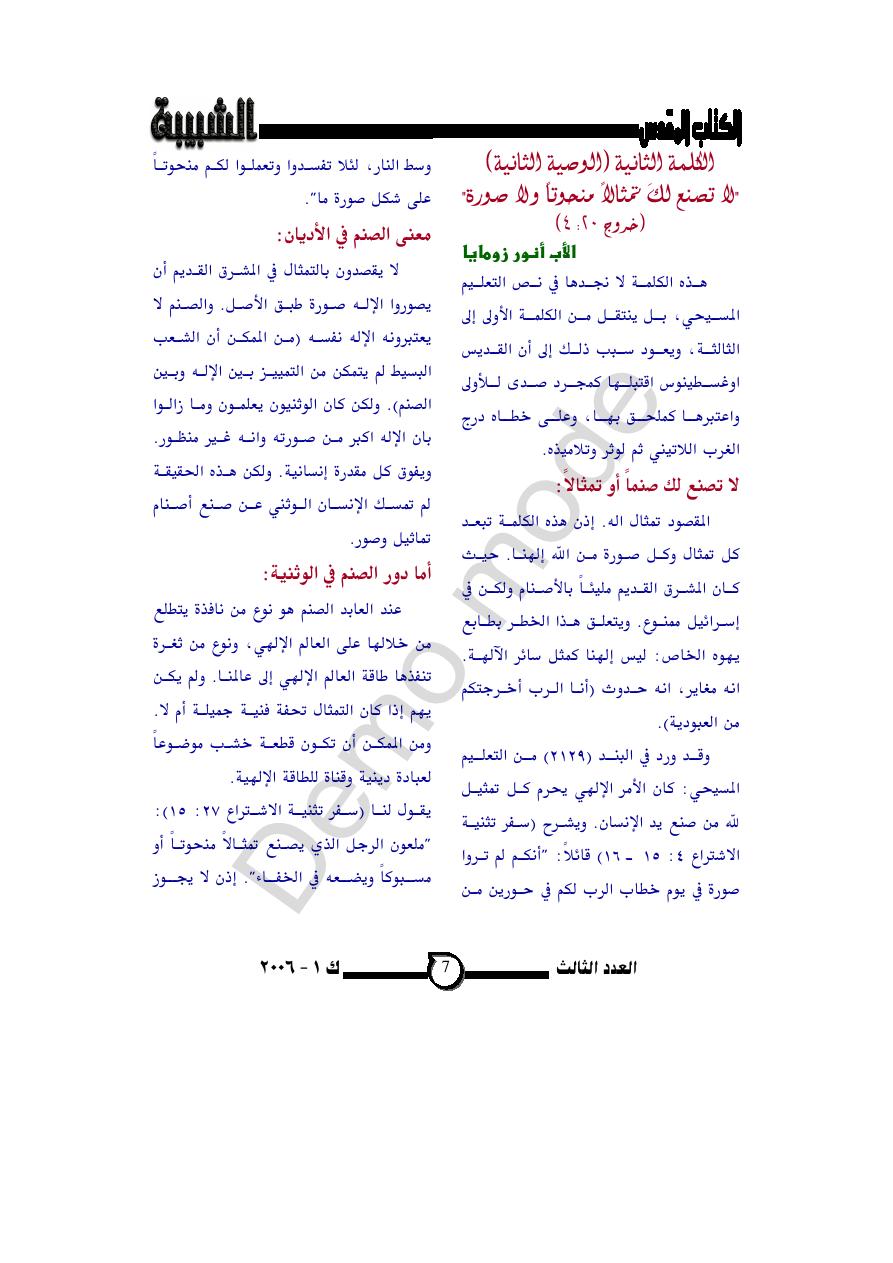 الكتاب المقدس
الشبيبة
الكلمة الثانية (الوصية الثانية)
"لا تصنع لكَ تمثالاً منحوتاً ولا صورة"
(خروج ٢٠: ٤)
الأب أنور زومايا
هـذه الكلمـة لا نجـدها في نـص التعلـيم
المسـيحي، بـل ينتقـل مـن الكلمـة الأولى إلى
الثالثـة، ويعـود سـبب ذلـك إلى أن القـديس
اوغسـطينوس اقتبلـها كمجـرد صـدى لـلأولى
واعتبرهـا كملحـق بهـا، وعلـى خطـاه درج
الغرب اللاتيني ثم لوثر وتلاميذه.
لا تصنع لك صنماً أو تمثالاً:
المقصود تمثال اله. إذن هذه الكلمـة تبعـد
كل تمثال وكـل صـورة مـن الله إلهنـا. حيـث
كـان المشـرق القـديم مليئـاً بالأصـنام ولكـن في
إسـرائيل ممنـوع. ويتعلـق هـذا الخطـر بطـابع
يهوه الخاص: ليس إلهنا كمثل سائر الآلهـة.
انه مغاير، انه حـدوث (أنـا الـرب أخـرجتكم
من العبودية).
وقـد ورد في البنـد (٢١٢٩) مـن التعلـيم
المسيحي: كان الأمر الإلهي يحرم كـل تمثيـل
لله من صنع يد الإنسان. ويشـرح (سـفر تثنيـة
الاشتراع ٤: ١٥ ـ ١٦) قائلاً: "أنكـم لم تـروا
صورة في يوم خطاب الرب لكم في حـورين مـن
وسط النار، لئلا تفسـدوا وتعملـوا لكـم منحوتـاً
على شكل صورة ما".
معنى الصنم في الأديان:
لا يقصدون بالتمثال في المشـرق القـديم أن
يصوروا الإلـه صـورة طبـق الأصـل. والصـنم لا
يعتبرونه الإله نفسـه (مـن الممكـن أن الشـعب
البسيط لم يتمكن من التمييـز بـين الإلـه وبـين
الصنم). ولكن كان الوثنيون يعلمـون ومـا زالـوا
بان الإله اكبر مـن صـورته وانـه غـير منظـور.
ويفوق كل مقدرة إنسانية. ولكن هـذه الحقيقـة
لم تمسـك الإنسـان الـوثني عـن صـنع أصـنام
تماثيل وصور.
أما دور الصنم في الوثنية:
عند العابد الصنم هو نوع من نافذة يتطلع
من خلالها على العالم الإلهي، ونوع من ثغـرة
تنفذها طاقة العالم الإلهي إلى عالمنـا. ولم يكـن
يهم إذا كان التمثال تحفة فنيـة جميلـة أم لا.
ومن الممكـن أن تكـون قطعـة خشـب موضـوعاً
لعبادة دينية وقناة للطاقة الإلهية.
يقـول لنـا (سـفر تثنيـة الاشـتراع ٢٧: ١٥):
"ملعون الرجل الذي يصـنع تمثـالاً منحوتـاً أو
مسـبوكاً ويضـعه في الخفـاء". إذن لا يجـوز
Demo mode
العدد الثالث
7
ك ١ - ٢٠٠٦